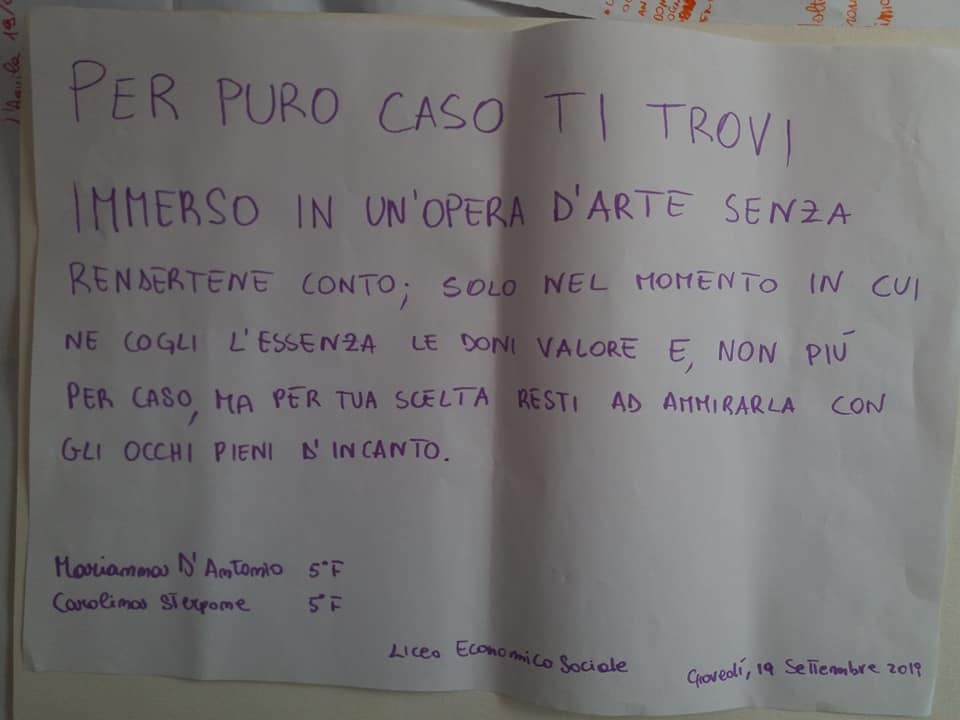 PER PURO CASO TI TROVI
IMMERSO IN UN'OPERA D'ARTE SENZA
RENDERTENE CONTO; SOLO NEL MOMENTO IN CUI
NE COGLI L'ESSENZA LE DONI VALORE E, NON PIÚ
PER CASO, MA PER TUA SCELTA RESTI AD AMMIRARLA CON
GLI OCCHI PIENI D'INCANTO.
Marianna D'Antonio 5°F
Carolina Sterpone 5°F
Liceo Economico Sociale
Giovedí, 19 Settembre 2019